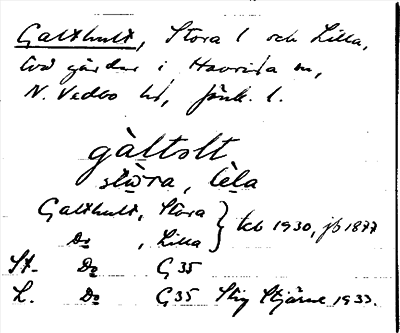 Galthult, Stora l och Lilla,
två gårdar i Haurida sn,
N. Vedbo hd, Jönk. l.
gàltslt
stòra, lèla
Galthult, Stora } tcb 1930, jb 1877
Do , Lilla
St. Do G 35
L. Do G 35 Stig Stjärne 1933.